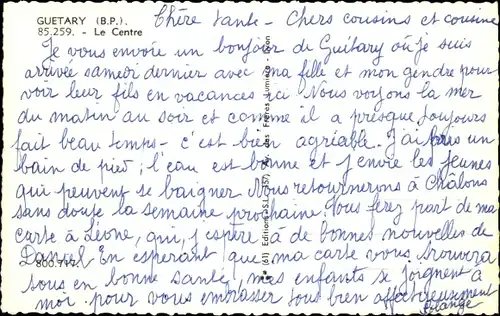 GUETARY (B.P.).
85.259. - Le Centre
Chère tante - Chers cousins et cousine
Je vous envoie un bonjour de Guitary où je suis
arrivée samedi dernier avec ma fille et mon gendre pour
voir leur fils en vacances ici Nous voyons la mer
du matin au soir et comme il a presque toujours
fait beau temps - c'est bien agréable. J'ai pris un
bain de pied ; l'eau est bonne et j'envie les jeunes
qui peuvent se baigner Nous retournerons à Châlons
sans doute la semaine prochaine. Vous ferez part de ma
carte à Léone, qui, j'espère a de bonnes nouvelles de
Daniel En espérant que ma carte vous trouvera
tous en bonne santé, mes enfants se joignent à
moi pour vous embrasser tous bien affectueusement
Solange